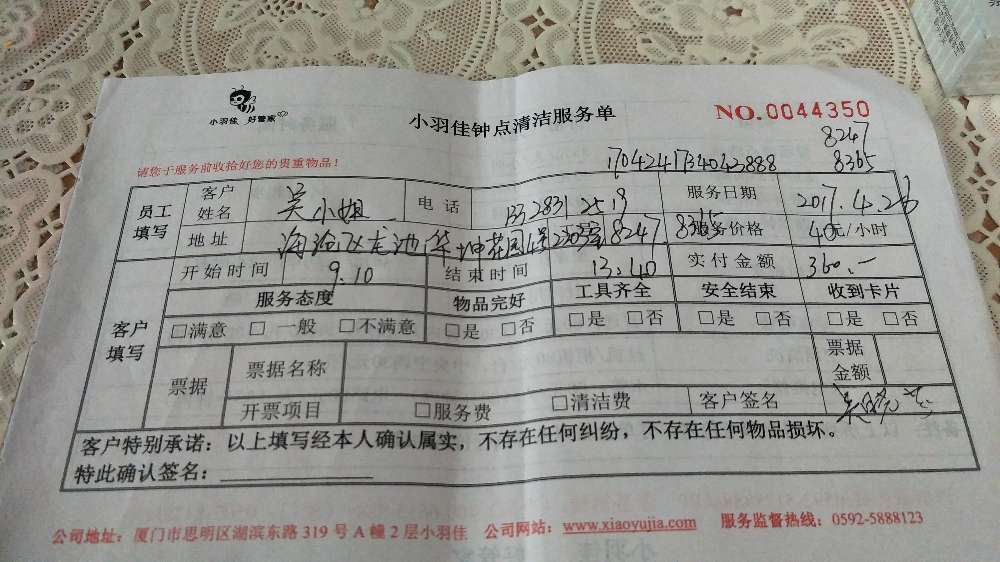 小羽佳 好管家
小羽佳钟点清洁服务单
NO.0044350
8247
请您于服务前收拾好您的贵重物品！
1704241734042888 8365
员工填写
客户姓名 吴小姐 电话 133 2831 2519 服务日期 2017.4.26
地址 海沧区龙池华 花园 8247 8365 服务价格 40元/小时
客户填写
开始时间 9.10 结束时间 13.40 实付金额 360.一
服务态度 物品完好 工具齐全 安全结束 收到卡片
□满意 □一般 □不满意 □是 □否 □是 □否 □是 □否 □是 □否
票据 票据名称 票据金额
开票项目 □服务费 □清洁费 客户签名
客户特别承诺：以上填写经本人确认属实，不存在任何纠纷，不存在任何物品损坏。
特此确认签名：
公司地址：厦门市思明区湖滨东路 319 号 A 幢 2 层小羽佳 公司网站：www.xiaoyujia.com 服务监督热线：0592-5888123